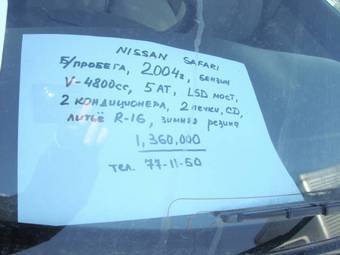 NISSAN SAFARI
Б/ПРОБЕГА, 2004г, БЕНЗИН
V-4800сс, 5АТ, LSD МОСТ,
2 КОНДИЦИОНЕРА, 2 ПЕЧКИ, CD,
ЛИТЬЁ R-16, ЗИМНЯЯ РЕЗИНА
1,360,000
ТЕЛ. 77-11-50